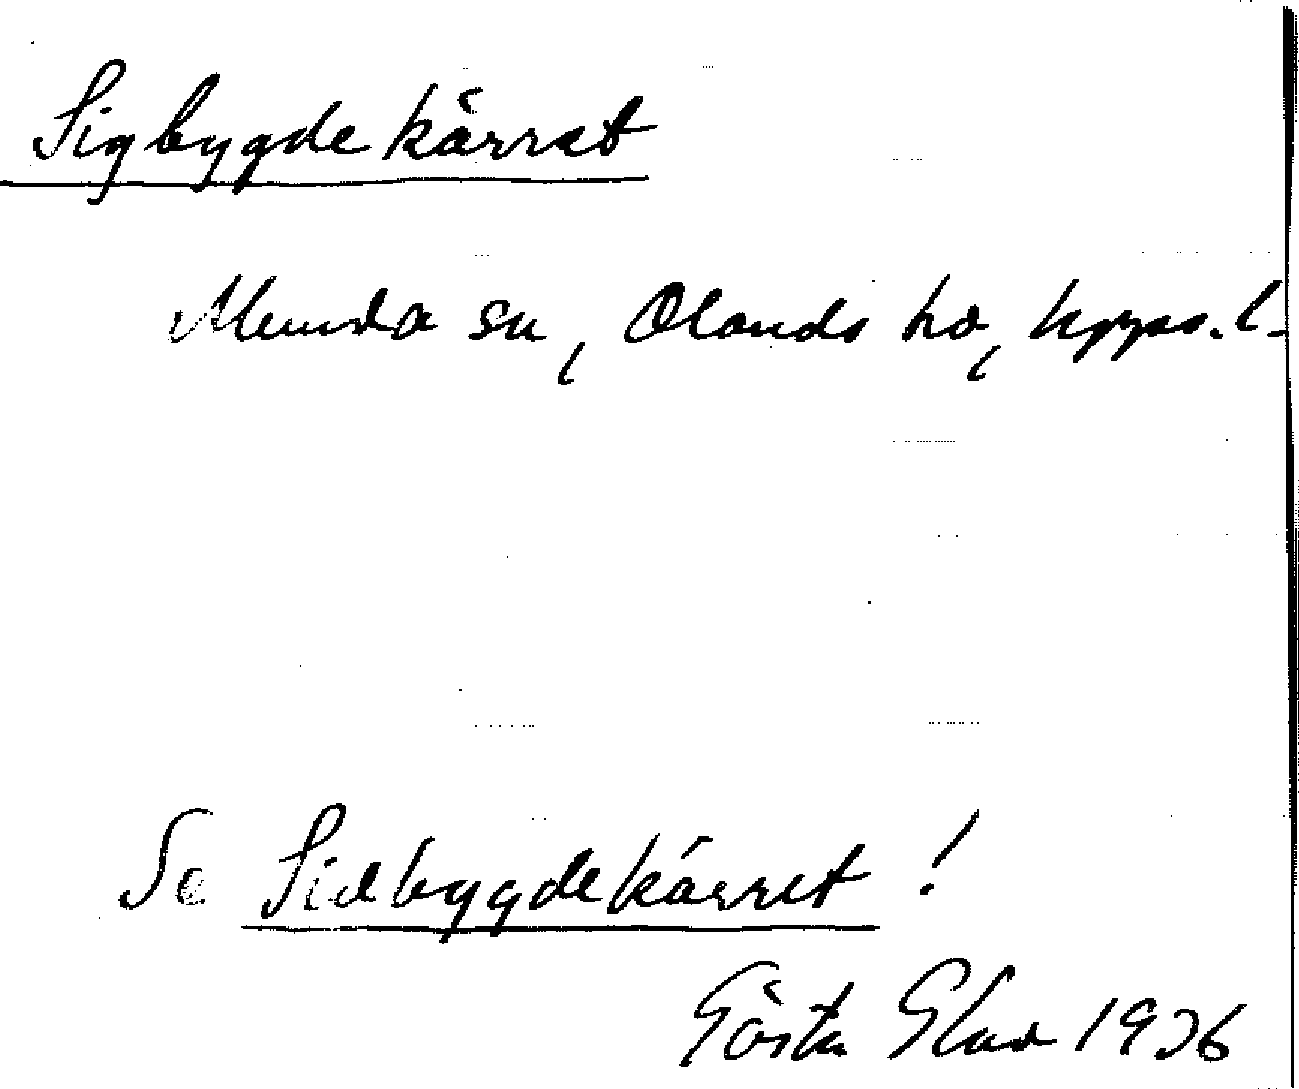 Sigbygdekärret
Alunda sn, Olands hd, Upps. l.
Se Sidbygdekärret!
Gösta Elad 1936